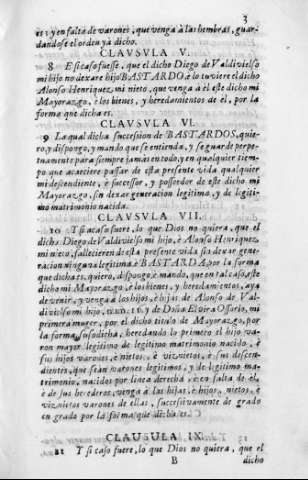 3
es: y en falta de varones, que venga à las hembras, guar-
dandose el orden yà dicho.
CLAVSVLA V.
8 E si caso fuesse, que el dicho Diego de Valdivielso
mi hijo no dexare hijo BASTARDO, è lo tuviere el dicho
Alonso Henriquez, mi nieto, que venga à èl este dicho mi
Mayorazgo, è los bienes, y heredamientos de èl, por la
forma que dicha es.
CLAVSVLA VI.
9 La qual dicha succession de BASTARDOS, quie-
ro, y dispongo, y mando que se entienda, y se guarde perpe-
tuamente para siempre jamàs en todo, y en qualquier tiempo
que acaeciere passar de esta presente vida qualquier
mi descendiente, è successor, y posseedor de este dicho mi
Mayorazgo, sin dexar generacion legitima, y de legiti-
mo matrimonio nacida.
CLAVSVLA VII.
10 Y si acaso fuere, lo que Dios no quiera, que el
dicho Diego de Valdivielso mi hijo, è Alonso Henriquez
mi nieto, fallecieren de esta presente vida sin dexar gene-
racion ninguna legitima, è BASTARDA, por la forma
que dicha es, quiero, dispongo, è mando, que en tal caso, este
dicho mi Mayorazgo, è los bienes, y heredamientos, aya
de venir, y venga à los hijos, è hijas de Alonso de Val-
divielso mi hijo, y de Doña Elvira Ossorio, mi
primera muger, por el dicho titulo de Mayorazgo, por
la forma susodicha, heredando lo primero el hijo va-
ron mayor legitimo de legitimo matrimonio nacido, è
sus hijos varones, è nietos, è viznietos, è sus descen-
dientes, que sean varones legitimos, y de legitimo ma-
trimonio, nacidos por linea derecha: è en falta de èl,
è de sus herederos, venga à los hijas, è hijos, nietos, è
viznietos varones de ellas, successivamente de grado
en grado por la forma que dicha es.
CLAUSULA IX.
11 Y si caso fuere, lo que Dios no quiera, que el
B dicho